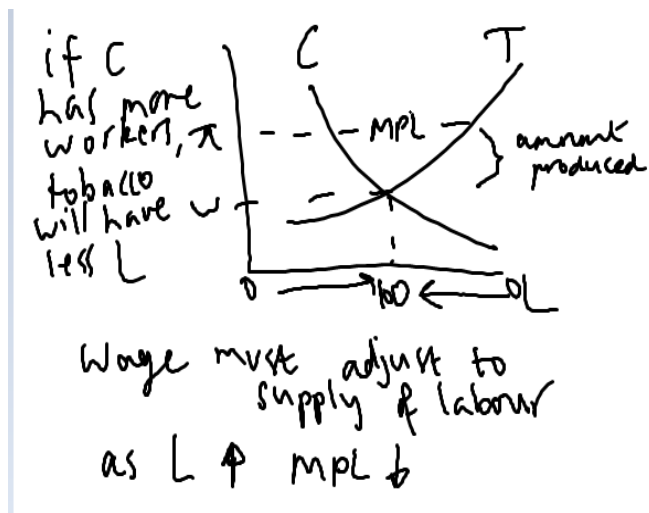 if C
has more
workers, π
tobacco
will have w
less L
C T
MPL
amount
produced
0 100 0L
Wage must adjust to
supply of labour
as L ↑ MPL ↓